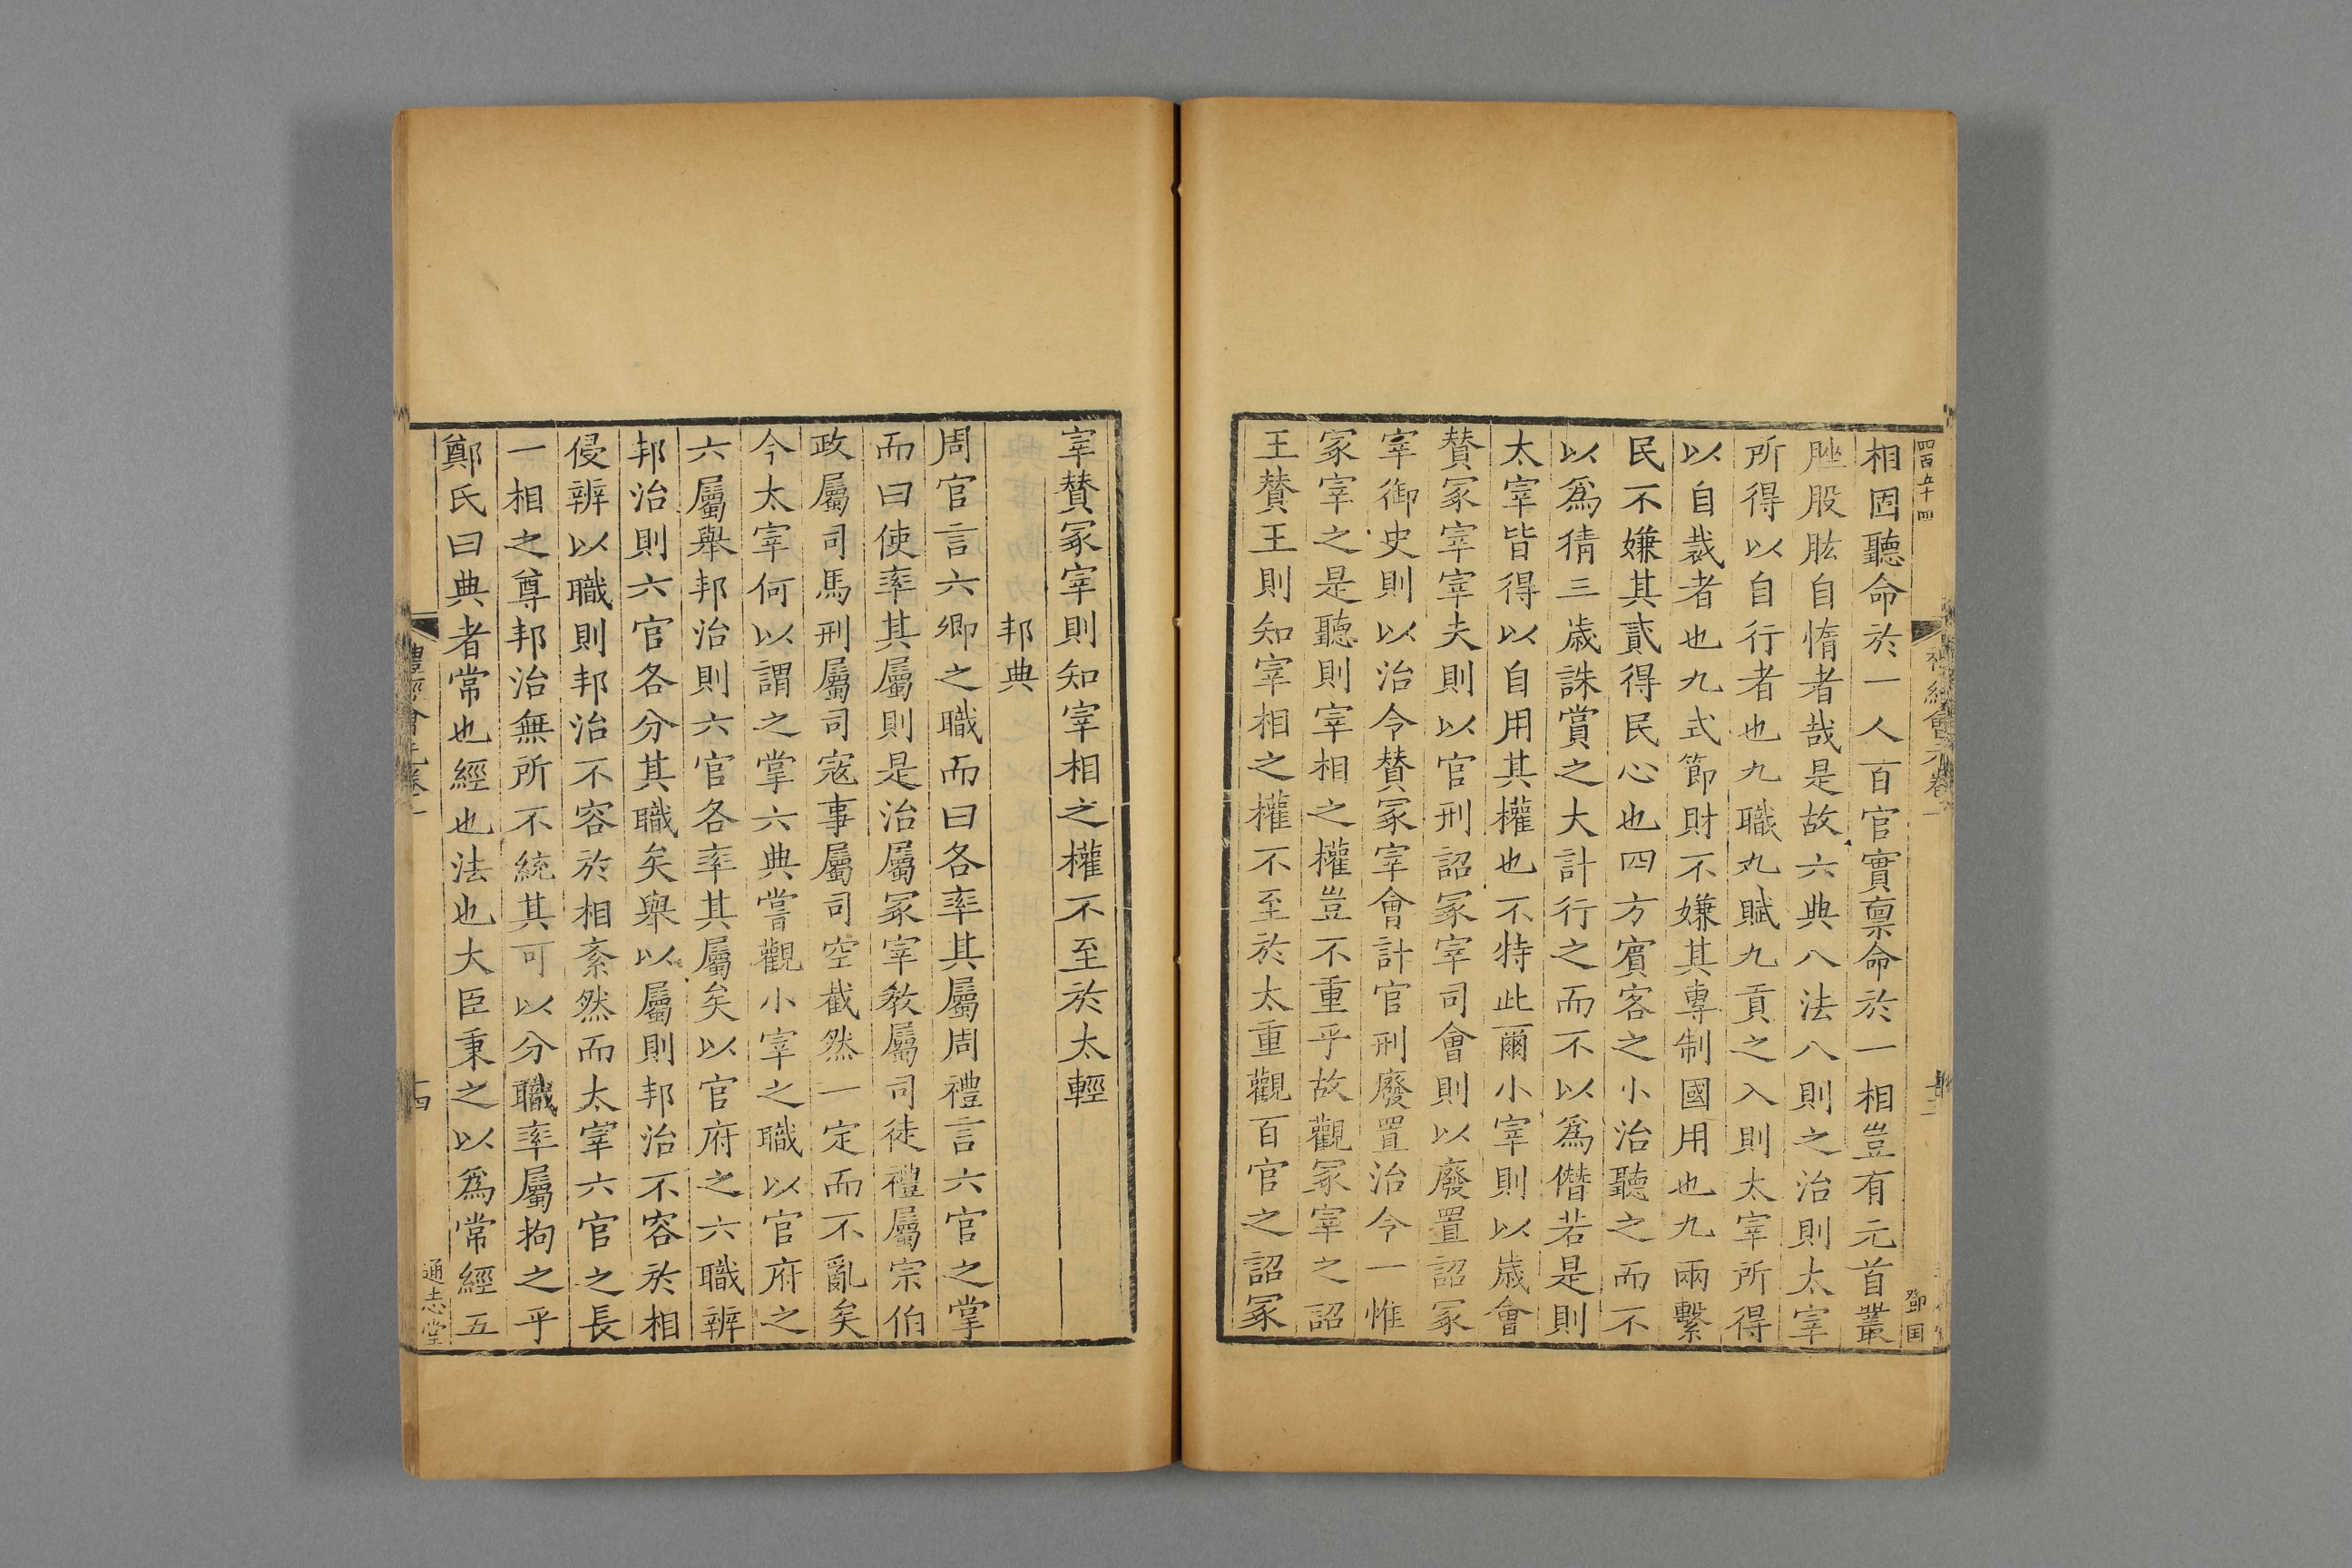 四百五十四
相因聽命於一人百官實稟命於一相豈有元首叢
脞股肱自惰者哉是故六典八法八則之治則太宰
所得以自行者也九職九賦九貢之入則太宰所得
以自裁者也九式節財不嫌其專制國用也九兩繫
民不嫌其貳得民心也四方賓客之小治聽之而不
以爲猜三歲誅賞之大計行之而不以爲僭若是則
太宰皆得以自用其權也不特此爾小宰則以歲會
贊冢宰宰夫則以官刑詔冢宰司會則以廢置詔冢
宰御史則以治令贊冢宰會計官刑廢置治令一惟
冢宰之是聽則宰相之權豈不重乎故觀冢宰之詔
王贊王則知宰相之權不至於太重觀百官之詔冢
宰贊冢宰則知宰相之權不至於太輕
邦典
周官言六卿之職而曰各率其屬周禮言六官之掌
而曰使率其屬則是治屬冢宰敎屬司徒禮屬宗伯
政屬司馬刑屬司寇事屬司空截然一定而不亂矣
今太宰何以謂之掌六典嘗觀小宰之職以官府之
六屬舉邦治則六官各率其屬矣以官府之六職辨
邦治則六官各分其職矣舉以屬則邦治不容於相
侵辨以職則邦治不容於相紊然而太宰六官之長
一相之尊邦治無所不統其可以分職率屬拘之乎
鄭氏曰典者常也經也法也大臣秉之以爲常經五
通志堂